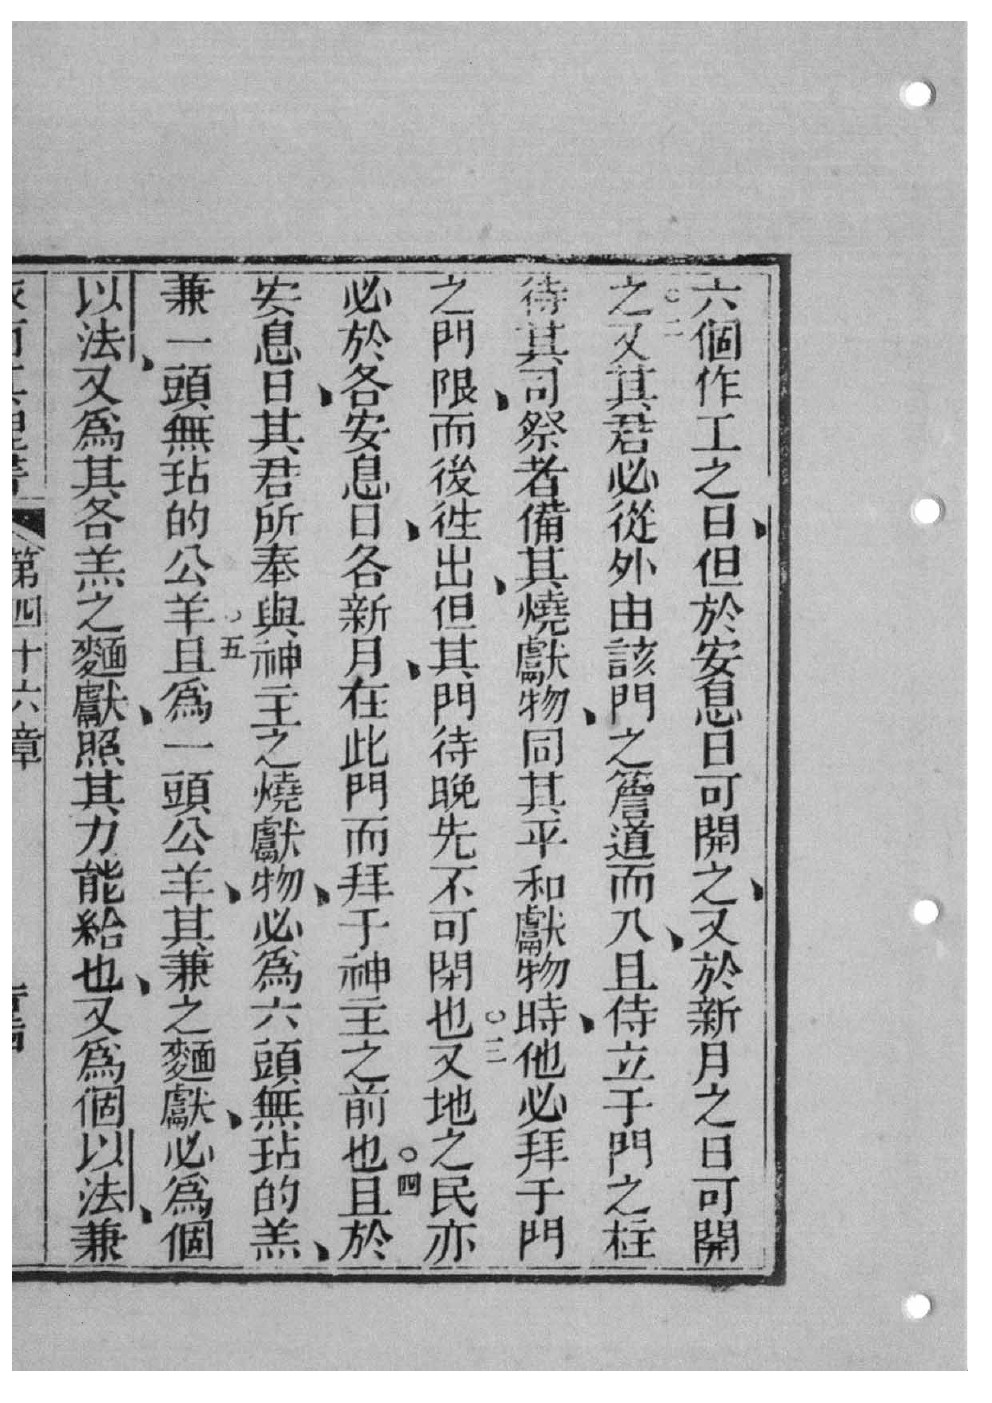 六個作工之日但於安息日可開之又於新月之日可開
之○二又其君必從外由該門之簷道而入且侍立于門之柱
待其司祭者備其燒獻物同其平和獻物時他必拜于門
之門限而後徃出但其門待晚先不可閉也○三又地之民亦
必於各安息日各新月在此門而拜于神主之前也○四且於
安息日其君所奉與神主之燒獻物必爲六頭無玷的羔
兼一頭無玷的公羊○五且爲一頭公羊其兼之麵獻必爲個
以法又爲其各羔之麵獻照其力能給也又爲個以法兼
第四十六章